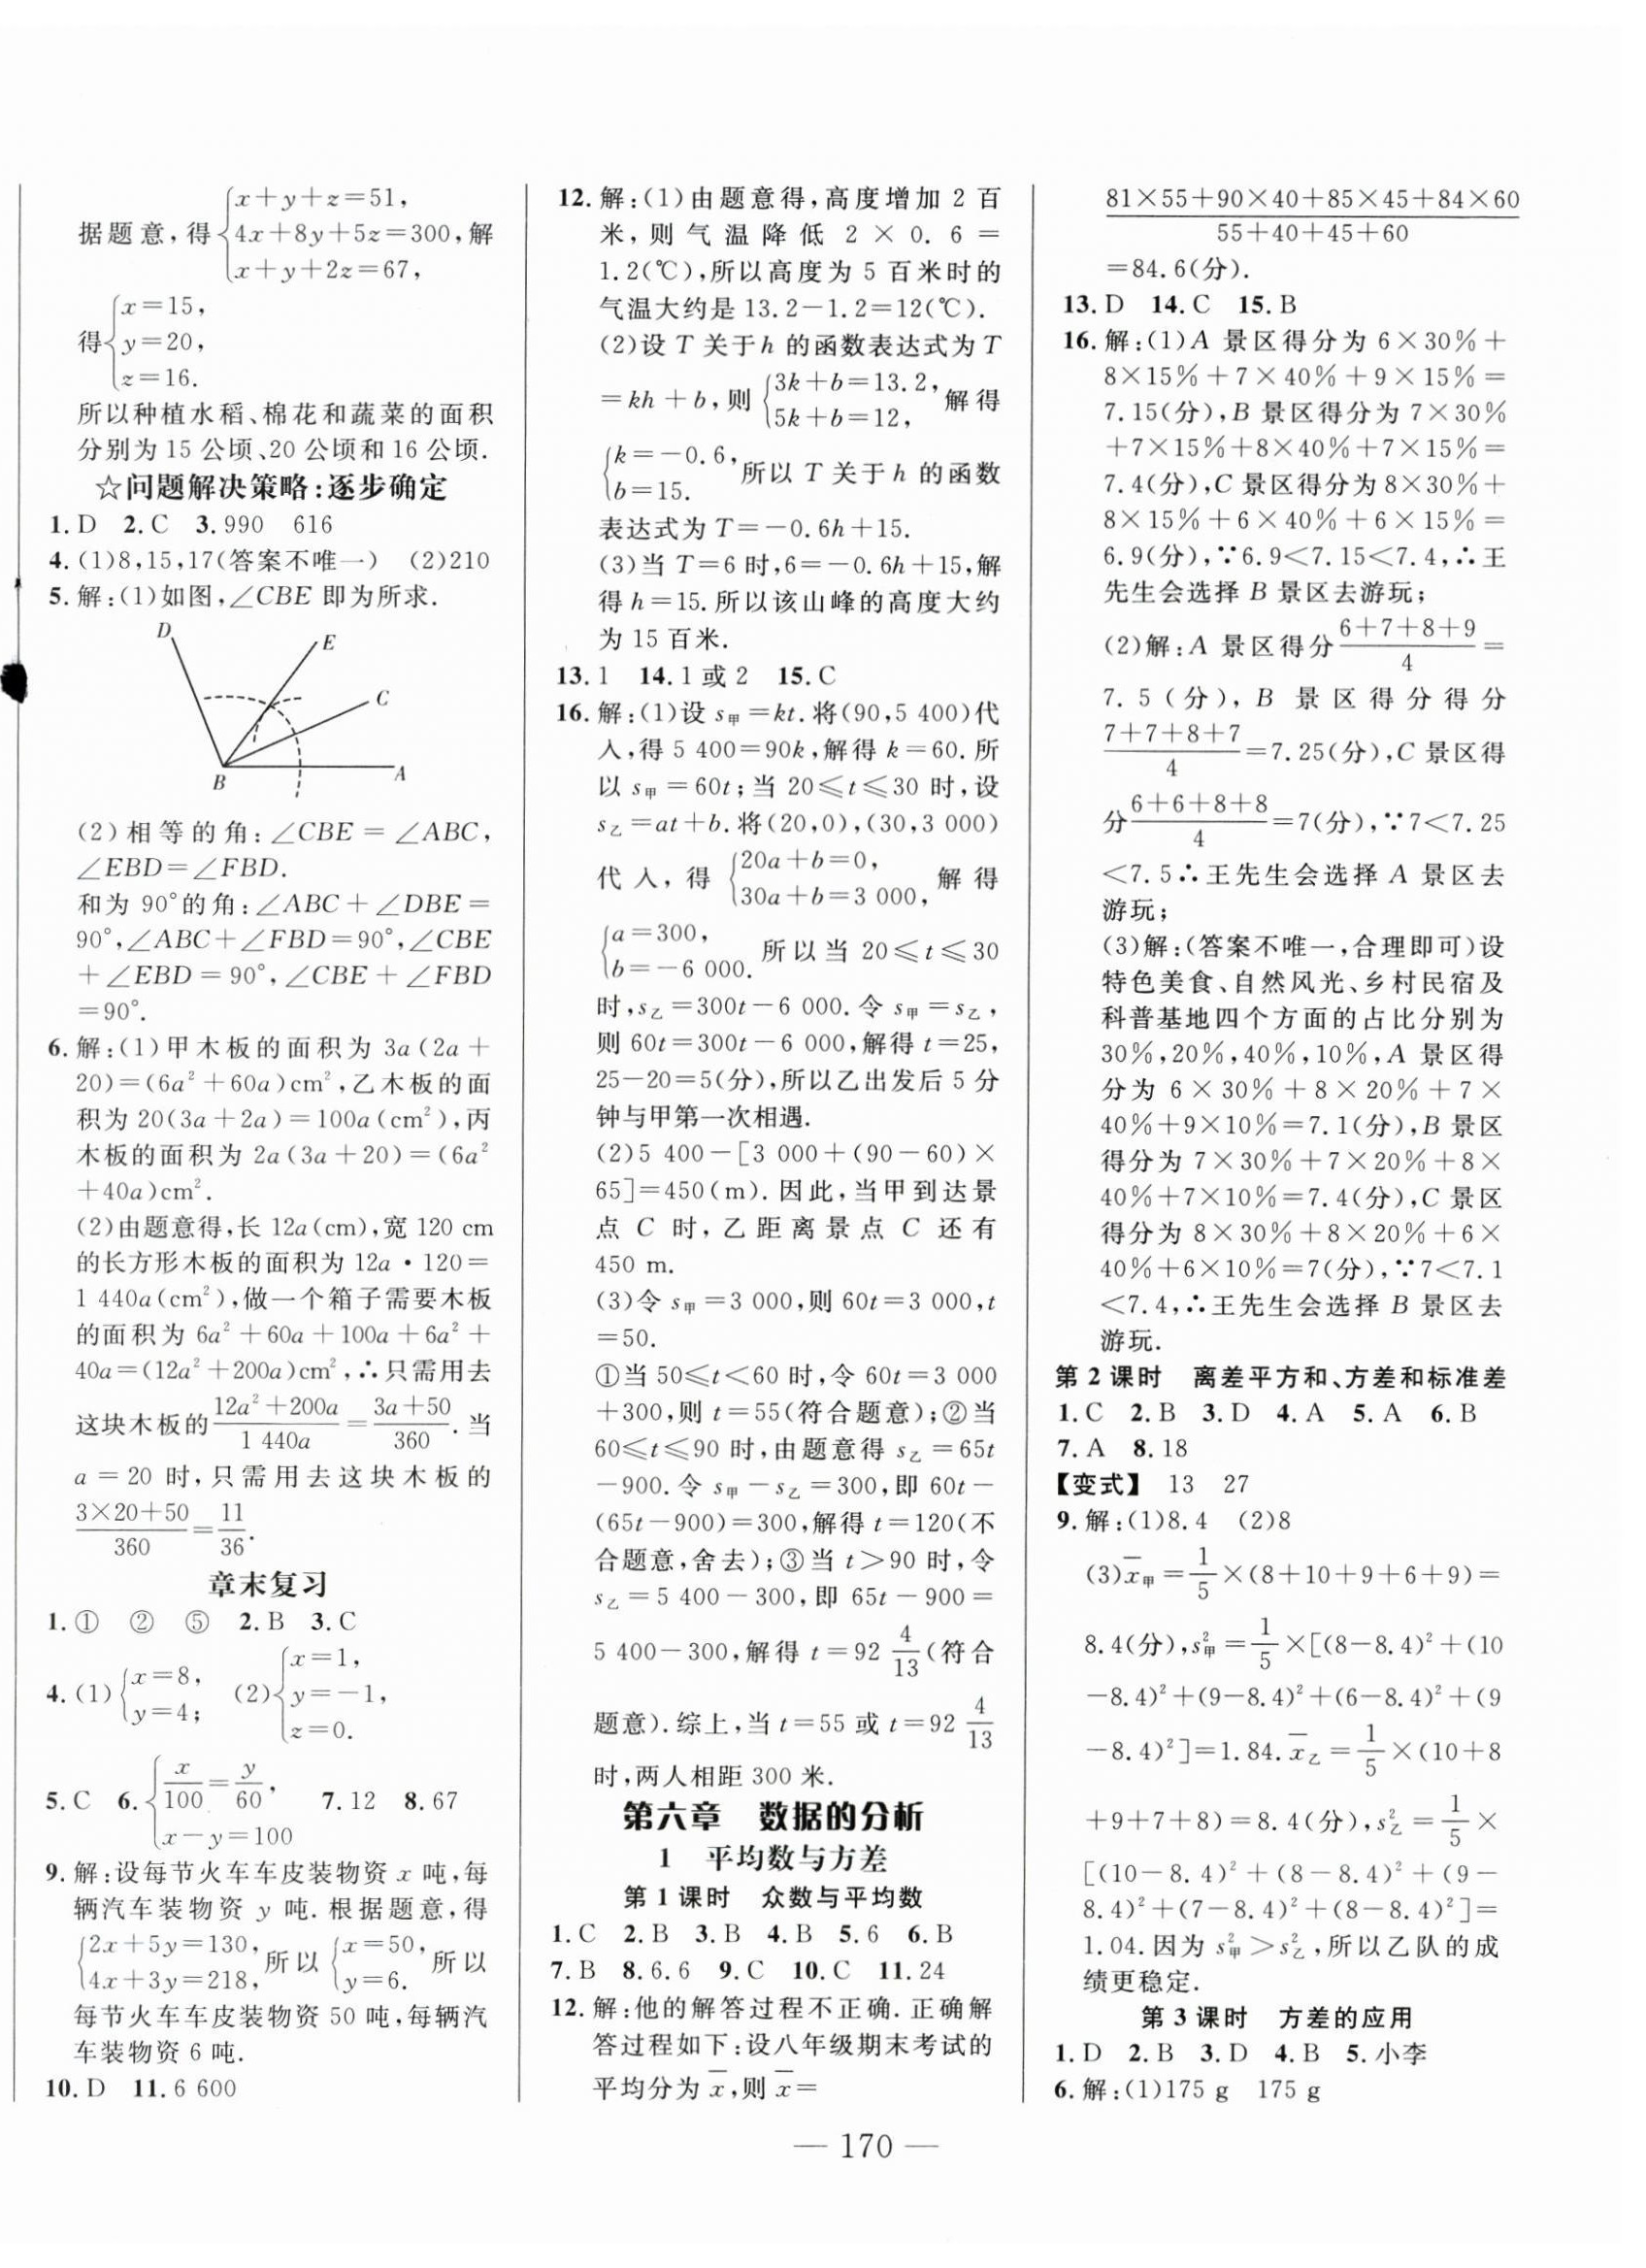 据题意,得{x+y+z=51, 4x+8y+5z=300, x+y+2z=67,解
得{x=15, y=20, z=16.
所以种植水稻、棉花和蔬菜的面积
分别为 15 公顷、20 公顷和 16 公顷.
☆问题解决策略:逐步确定
1. D 2. C 3. 990 616
4. (1)8,15,17(答案不唯一) (2)210
5. 解:(1)如图,∠CBE 即为所求.
D
E
C
B
A
(2)相等的角:∠CBE=∠ABC,
∠EBD=∠FBD.
和为 90°的角:∠ABC+∠DBE=
90°,∠ABC+∠FBD=90°,∠CBE
+∠EBD=90°,∠CBE+∠FBD
=90°.
6. 解:(1)甲木板的面积为 3a(2a+
20)=(6a²+60a)cm²,乙木板的面
积为 20(3a+2a)=100a(cm²),丙
木板的面积为 2a(3a+20)=(6a²
+40a)cm².
(2)由题意得,长 12a(cm),宽 120 cm
的长方形木板的面积为 12a·120=
1 440a(cm²),做一个箱子需要木板
的面积为 6a²+60a+100a+6a²+
40a=(12a²+200a)cm²,∴只需用去
这块木板的(12a²+200a)/(1 440a)=(3a+50)/360.当
a=20 时,只需用去这块木板的
(3×20+50)/360=11/36.
章末复习
1. ① ② ⑤ 2. B 3. C
4. (1){x=8, y=4; (2){x=1, y=-1, z=0.
5. C 6. {x/100=y/60, x-y=100 7. 12 8. 67
9. 解:设每节火车车皮装物资 x 吨,每
辆汽车装物资 y 吨.根据题意,得
{2x+5y=130, 4x+3y=218,所以{x=50, y=6.所以
每节火车车皮装物资 50 吨,每辆汽
车装物资 6 吨.
10. D 11. 6 600
12. 解:(1)由题意得,高度增加 2 百
米,则气温降低 2×0.6=
1.2(℃),所以高度为 5 百米时的
气温大约是 13.2-1.2=12(℃).
(2)设 T 关于 h 的函数表达式为 T
=kh+b,则{3k+b=13.2, 5k+b=12,解得
{k=-0.6, b=15.所以 T 关于 h 的函数
表达式为 T=-0.6h+15.
(3)当 T=6 时,6=-0.6h+15,解
得 h=15.所以该山峰的高度大约
为 15 百米.
13. 1 14. 1 或 2 15. C
16. 解:(1)设 s甲=kt.将(90,5 400)代
入,得 5 400=90k,解得 k=60.所
以 s甲=60t;当 20≤t≤30 时,设
s乙=at+b.将(20,0),(30,3 000)
代入,得{20a+b=0, 30a+b=3 000,解得
{a=300, b=-6 000.所以当 20≤t≤30
时,s乙=300t-6 000.令 s甲=s乙,
则 60t=300t-6 000,解得 t=25,
25-20=5(分),所以乙出发后 5 分
钟与甲第一次相遇.
(2)5 400-[3 000+(90-60)×
65]=450(m).因此,当甲到达景
点 C 时,乙距离景点 C 还有
450 m.
(3)令 s甲=3 000,则 60t=3 000,t
=50.
①当 50≤t<60 时,令 60t=3 000
+300,则 t=55(符合题意);②当
60≤t≤90 时,由题意得 s乙=65t
-900.令 s甲-s乙=300,即 60t-
(65t-900)=300,解得 t=120(不
合题意,舍去);③当 t>90 时,令
s乙=5 400-300,即 65t-900=
5 400-300,解得 t=92 4/13(符合
题意).综上,当 t=55 或 t=92 4/13
时,两人相距 300 米.
第六章 数据的分析
1 平均数与方差
第 1 课时 众数与平均数
1. C 2. B 3. B 4. B 5. 6 6. B
7. B 8. 6.6 9. C 10. C 11. 24
12. 解:他的解答过程不正确.正确解
答过程如下:设八年级期末考试的
平均分为 x̄,则 x̄=
(81×55+90×40+85×45+84×60)/(55+40+45+60)
=84.6(分).
13. D 14. C 15. B
16. 解:(1)A 景区得分为 6×30%+
8×15%+7×40%+9×15%=
7.15(分),B 景区得分为 7×30%
+7×15%+8×40%+7×15%=
7.4(分),C 景区得分为 8×30%+
8×15%+6×40%+6×15%=
6.9(分),∵6.9<7.15<7.4,∴王
先生会选择 B 景区去游玩;
(2)解:A 景区得分(6+7+8+9)/4=
7.5(分),B 景区得分得分
(7+7+8+7)/4=7.25(分),C 景区得
分(6+6+8+8)/4=7(分),∵7<7.25
<7.5∴王先生会选择 A 景区去
游玩;
(3)解:(答案不唯一,合理即可)设
特色美食、自然风光、乡村民宿及
科普基地四个方面的占比分别为
30%,20%,40%,10%,A 景区得
分为 6×30%+8×20%+7×
40%+9×10%=7.1(分),B 景区
得分为 7×30%+7×20%+8×
40%+7×10%=7.4(分),C 景区
得分为 8×30%+8×20%+6×
40%+6×10%=7(分),∵7<7.1
<7.4,∴王先生会选择 B 景区去
游玩.
第 2 课时 离差平方和、方差和标准差
1. C 2. B 3. D 4. A 5. A 6. B
7. A 8. 18
【变式】 13 27
9. 解:(1)8.4 (2)8
(3)x̄甲=1/5×(8+10+9+6+9)=
8.4(分),s²甲=1/5×[(8-8.4)²+(10
-8.4)²+(9-8.4)²+(6-8.4)²+(9
-8.4)²]=1.84.x̄乙=1/5×(10+8
+9+7+8)=8.4(分),s²乙=1/5×
[(10-8.4)²+(8-8.4)²+(9-
8.4)²+(7-8.4)²+(8-8.4)²]=
1.04.因为 s²甲>s²乙,所以乙队的成
绩更稳定.
第 3 课时 方差的应用
1. D 2. B 3. D 4. B 5. 小李
6. 解:(1)175 g 175 g
— 170 —